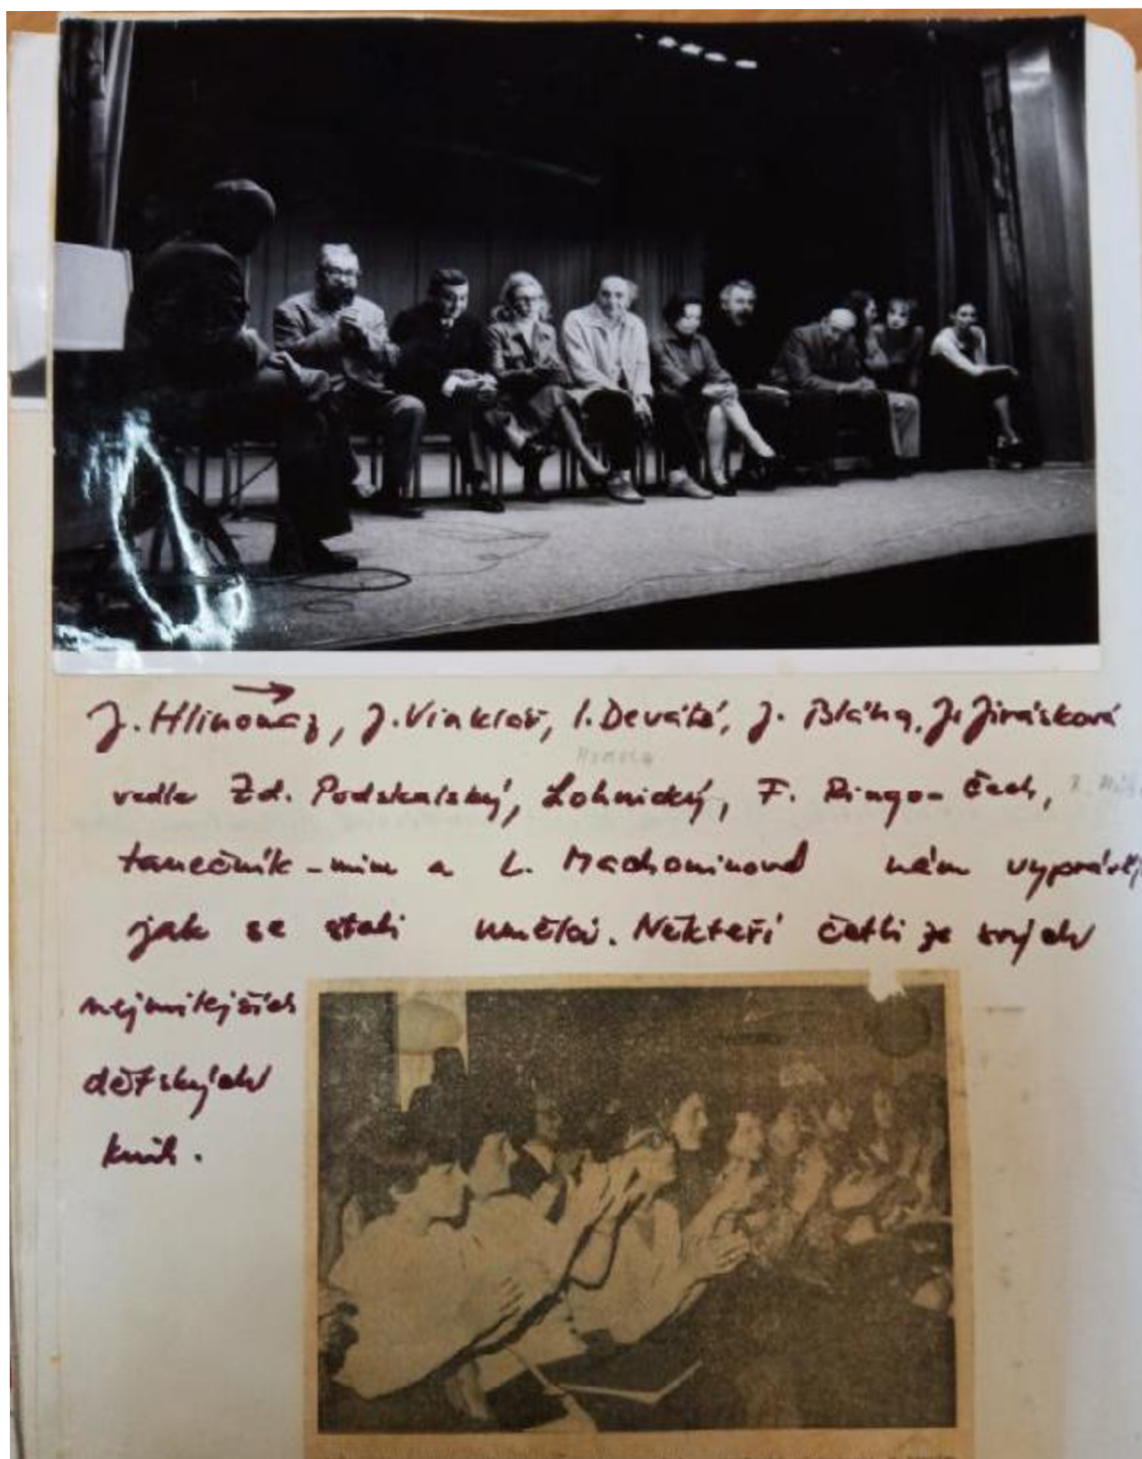 J. Hlinomaz, J. Vinklář, I. Devátá, J. Bláha, J. Jirásková
vedle Zd. Podskalský, Lohnický, F. Ringo-Čech,
tanečník-mim a L. Machoninová nám vyprávěli
jak se stali umělci. Někteří četli ze svých
nejmilejších
dětských
knih.